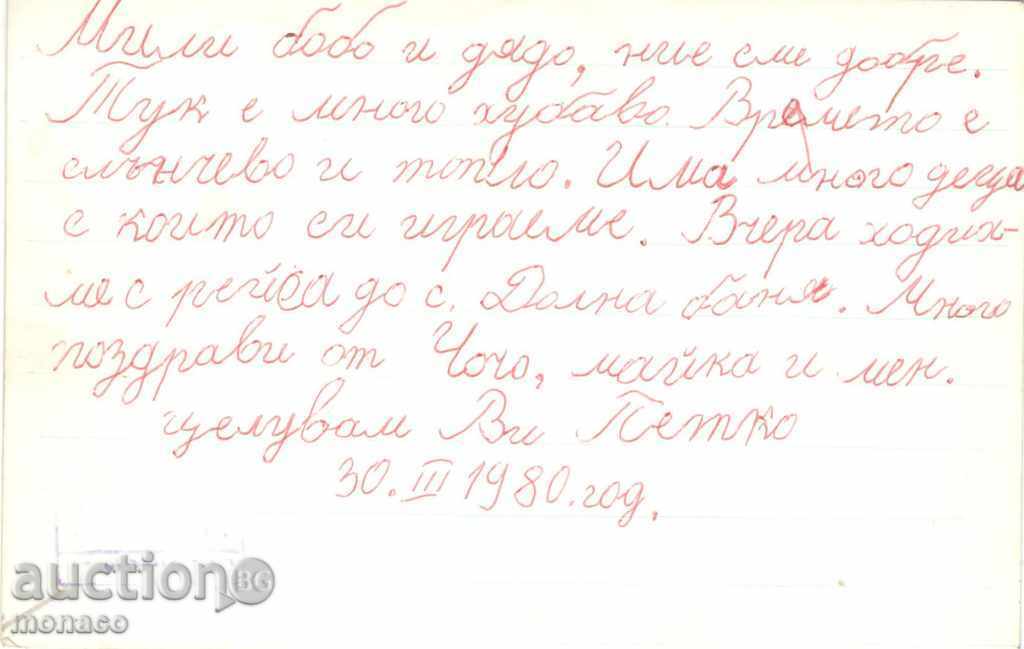 Мили бобо и дядо, ние сме добре.
Тук е много хубаво. Времето е
слънчево и топло. Има много деца
с които си играеме. Вчера ходих-
ме с рейса до с. Долна баня. Много
поздрави от Чочо, майка и мен.
целувам Ви Петко
30. III 1980. год.
auction BG
monaco